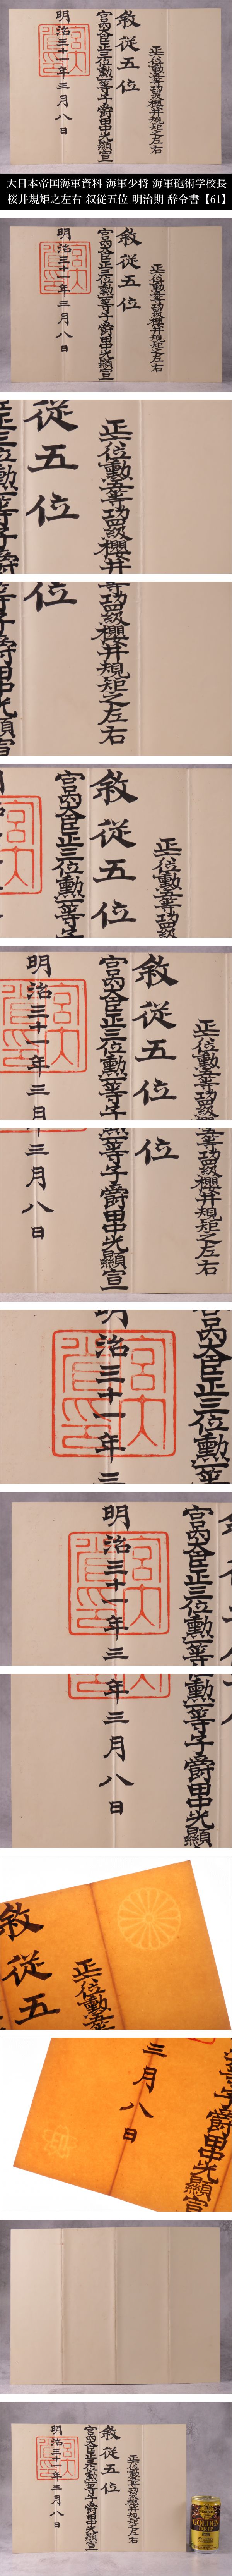 正六位勲五等功四級櫻井規矩之左右
敘從五位
宮内大臣正三位勲一等子爵田中光顯宣
明治三十一年三月八日
大日本帝国海軍資料 海軍少将 海軍砲術学校長
桜井規矩之左右 叙従五位 明治期 辞令書【61】
正六位勲五等功四級櫻井規矩之左右
敘從五位
宮内大臣正三位勲一等子爵田中光顯宣
明治三十一年三月八日
正六位勲五等功四級櫻井
從五位
正三位勲一等子爵
級櫻井規矩之左右
位
等子爵田中光顯宣
正六位勲五等功四級
敘從五位
宮内大臣正三位勲一等子
正六位勲五等功四級
敘從五位
宮内大臣正三位勲一等子
明治三十一年三月
五等功四級櫻井規矩之左右
位
勲一等子爵田中光顯宣
年三月八日
宮内大臣正三位勲一等
明治三十一年三
宮内大臣正三位勲一等子
明治三十一年三
勲一等子爵田中光顯
年三月八日
正六位勲五
敘從五
子爵田中光顯宣
三月八日
正六位勲五等功四級櫻井規矩之左右
敘從五位
宮内大臣正三位勲一等子爵田中光顯宣
明治三十一年三月八日
GOLDEN